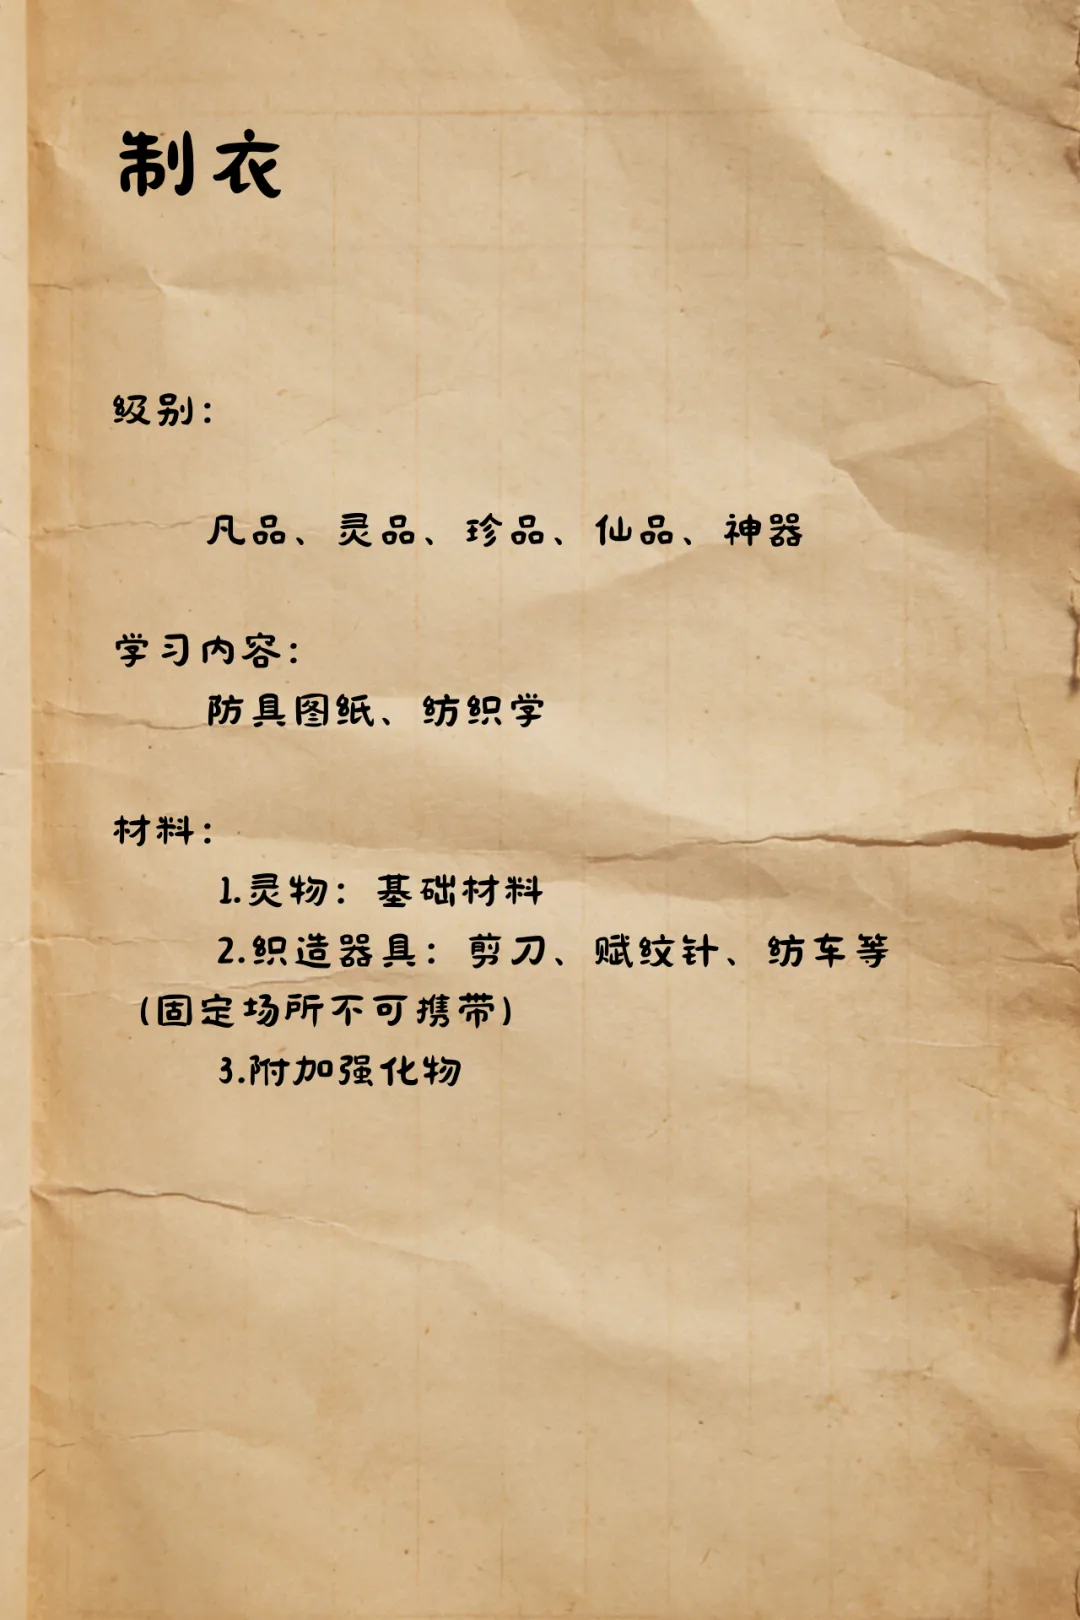 制衣
级别：
凡品、灵品、珍品、仙品、神器
学习内容：
防具图纸、纺织学
材料：
1.灵物：基础材料
2.织造器具：剪刀、赋纹针、纺车等
(固定场所不可携带)
3.附加强化物